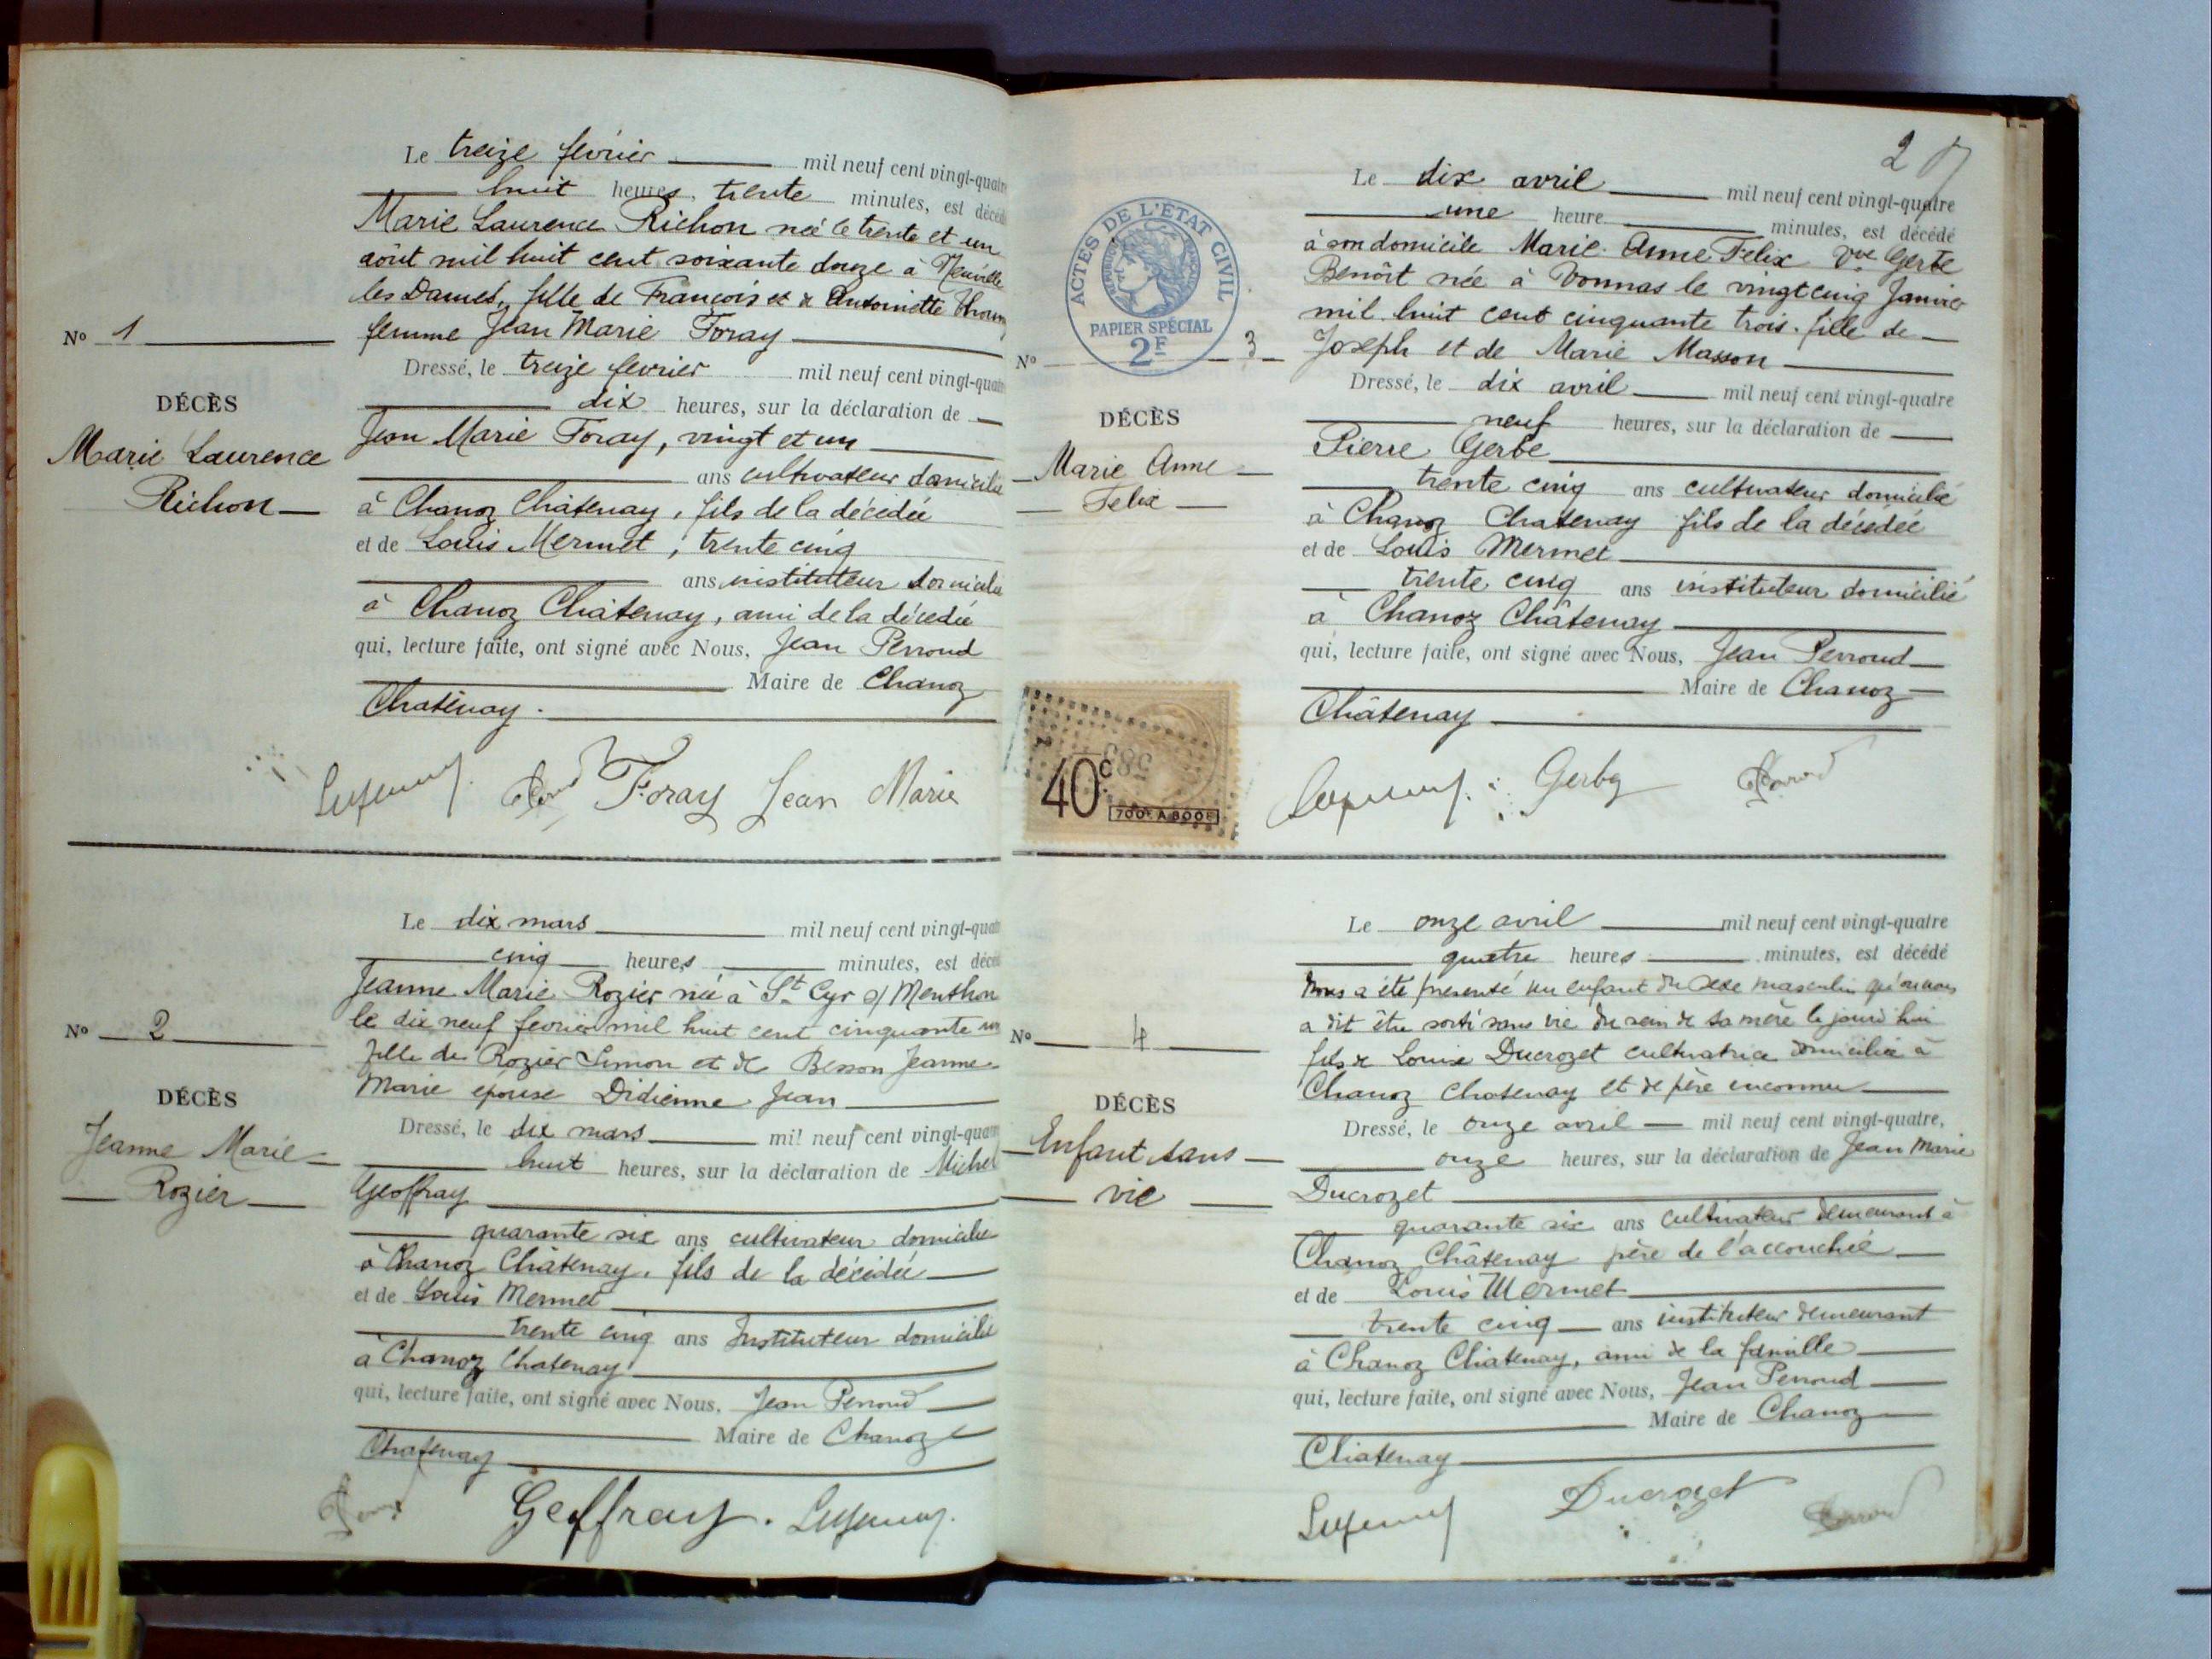 Le treize février mil neuf cent vingt-quatre
huit heures, trente minutes, est décédé
Marie Laurence Richon née le trente et un
août mil huit cent soixante douze à Neuville
les Dames, fille de François et de Antoinette
femme Jean Marie Foray
Nº 1
Dressé, le treize fevrier mil neuf cent vingt-quatre
DÉCÈS
dix heures, sur la déclaration de
Marie Laurence
Richon
Jean Marie Foray, vingt et un
ans cultivateur domicilié
à Chanoz Châtenay, fils de la décédée
et de Louis Mermet, trente cinq
ans instituteur domicilié
à Chanoz Châtenay, ami de la décédée
qui, lecture faite, ont signé avec Nous, Jean Perroud
Maire de Chanoz
Chatenay.
Foray Jean Marie
Le dix mars mil neuf cent vingt-quatre
cinq heures minutes, est décédé
Jeanne Marie Rozier née à St Cyr s/ Menthon
le dix neuf fevrier mil huit cent cinquante un
Nº 2
fille de Rozier Simon et de Besson Jeanne
Marie épouse Didienne Jean
DÉCÈS
Jeanne Marie
Rozier
Dressé, le dix mars mil neuf cent vingt-quatre
huit heures, sur la déclaration de Michel
Geoffray
quarante six ans cultivateur domicilié
à Chanoz Châtenay, fils de la décédée
et de Louis Mermet
trente cinq ans Instituteur domicilié
à Chanoz Chatenay
qui, lecture faite, ont signé avec Nous, Jean Perroud
Maire de Chanoz
Chatenay
Geoffray.
2
ACTES DE L'ÉTAT CIVIL
PAPIER SPÉCIAL
2F
Le dix avril mil neuf cent vingt-quatre
une heure minutes, est décédé
à son domicile Marie Anne Felix Vve Gerbe
Benoît née à Vonnas le vingt cinq Janvier
mil huit cent cinquante trois. fille de
Nº 3
Joseph et de Marie Masson
Dressé, le dix avril mil neuf cent vingt-quatre
DÉCÈS
neuf heures, sur la déclaration de
Marie Anne
Felix
Pierre Gerbe
trente cinq ans cultivateur domicilié
à Chanoz Chatenay fils de la décédée
et de Louis Mermet
trente cinq ans instituteur domicilié
à Chanoz Châtenay
qui, lecture faite, ont signé avec Nous, Jean Perroud
Maire de Chanoz
Châtenay
40c
700F A 800F
Gerbe
Le onze avril mil neuf cent vingt-quatre
quatre heures minutes, est décédé
Nous a été présenté un enfant du sexe masculin qu'on nous
a dit être sorti sans vie du sein de sa mère le jourd'hui
Nº 4
fils de Louise Ducrozet cultivatrice domiciliée à
Chanoz Chatenay et de père inconnu
DÉCÈS
Enfant sans
vie
Dressé, le onze avril mil neuf cent vingt-quatre,
onze heures, sur la déclaration de Jean Marie
Ducrozet
quarante six ans cultivateur demeurant à
Chanoz Châtenay père de l'accouchée
et de Louis Mermet
trente cinq ans instituteur demeurant
à Chanoz Chatenay, ami de la famille
qui, lecture faite, ont signé avec Nous, Jean Perroud
Maire de Chanoz
Chatenay
Ducrozet